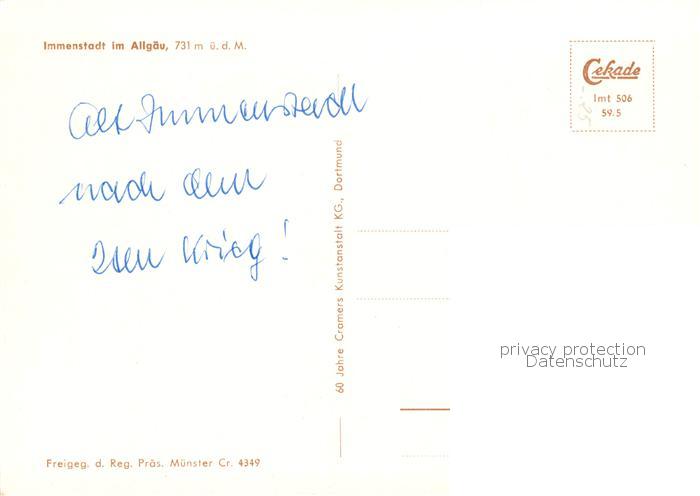 Immenstadt im Allgäu, 731 m ü. d. M.
Cekade
Imt 506
59.5
Alt Immenstadt
nach dem
2ten Krieg!
60 Jahre Cramers Kunstanstalt KG., Dortmund
privacy protection
Datenschutz
Freigeg. d. Reg. Präs. Münster Cr. 4349